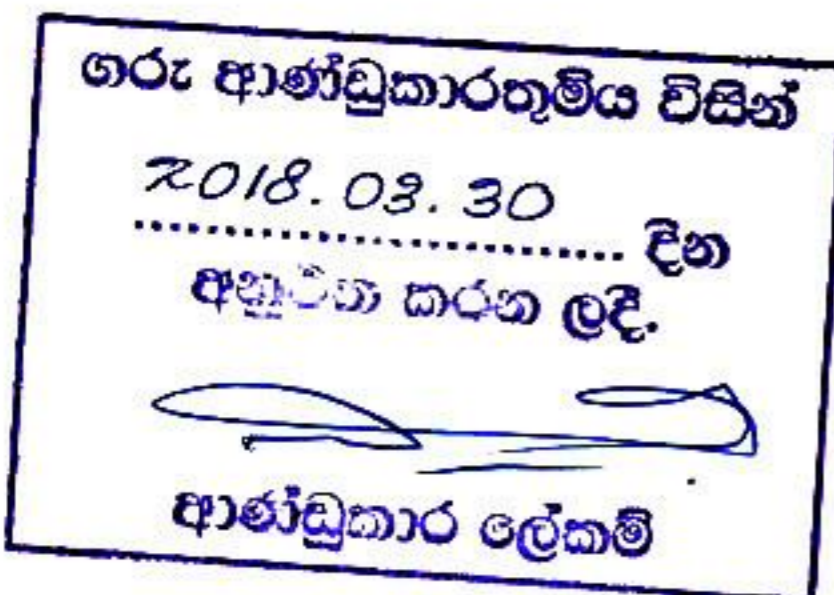 ගරු ආණ්ඩුකාරතුමිය විසින්
2018.03.30
.................................... දින
කරන ලදී.
ආණ්ඩුකාර ලේකම්